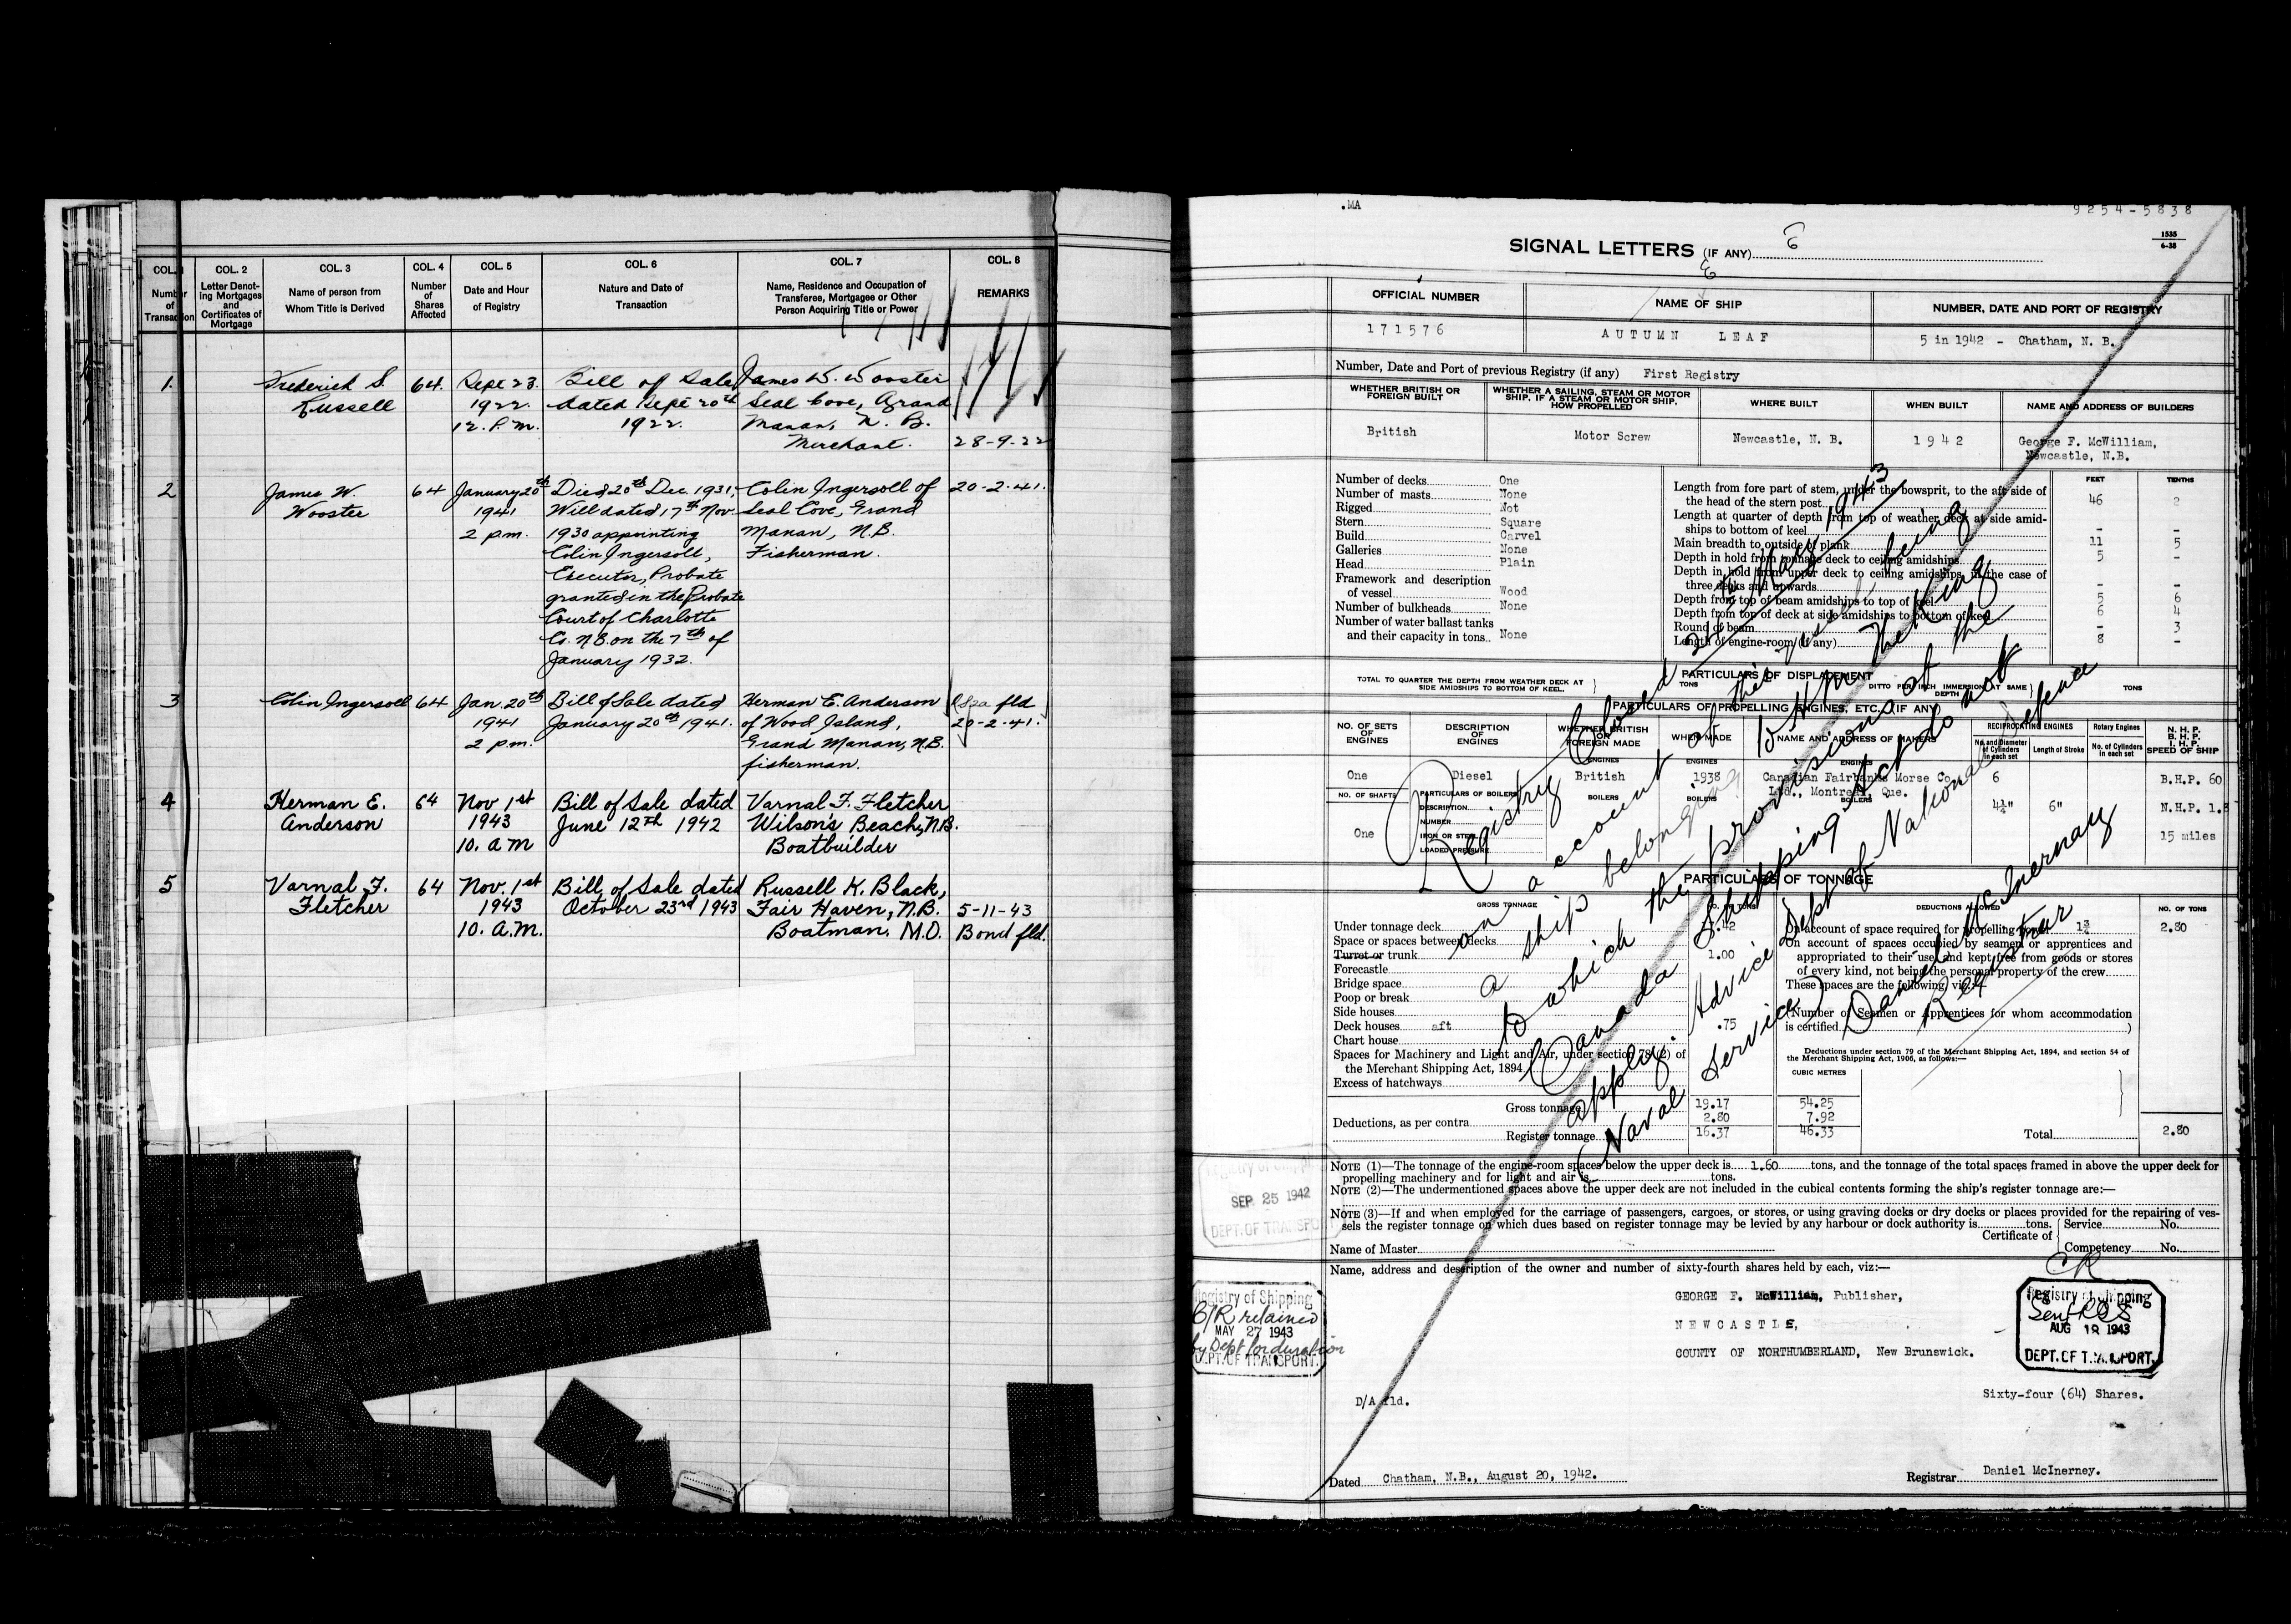 COL. 1
Number
of
Transaction
COL. 2
Letter Denot-
ing Mortgages
and
Certificates of
Mortgage
COL. 3
Name of person from
Whom Title is Derived
COL. 4
Number
of
Shares
Affected
COL. 5
Date and Hour
of Registry
COL. 6
Nature and Date of
Transaction
COL. 7
Name, Residence and Occupation of
Transferee, Mortgagee or Other
Person Acquiring Title or Power
COL. 8
REMARKS
1.
Frederick S.
Russell
64.
Sept 23.
1922.
12. P.M.
Bill of Sale
dated Sept 20th
1922.
James W. Wooster
Seal Cove, Grand
Manan, N. B.
Merchant.
28-9-22
2
James W.
Wooster
64
January 20th
1941
2 p.m.
Died 20th Dec. 1931,
Will dated 17th Nov.
1930 appointing
Colin Ingersoll,
Executor, Probate
granted in the Probate
Court of Charlotte
Co. N.B. on the 7th of
January 1932.
Colin Ingersoll of
Seal Cove, Grand
Manan, N.B.
Fisherman.
20-2-41.
3
Colin Ingersoll
64
Jan. 20th
1941
2 p.m.
Bill of Sale dated
January 20th 1941.
Herman E. Anderson
of Wood Island,
Grand Manan, N.B.
fisherman.
fld
20-2-41.
4
Herman E.
Anderson
64
Nov 1st
1943
10. a m
Bill of Sale dated
June 12th 1942
Varnal F. Fletcher
Wilson's Beach, N.B.
Boatbuilder
5
Varnal F.
Fletcher
64
Nov. 1st
1943
10. A.M.
Bill of Sale dated
October 23rd 1943
Russell K. Black,
Fair Haven, N.B.
Boatman. M.O.
5-11-43
Bond fld.
.MA
9254-5838
1535
6-38
SIGNAL LETTERS (IF ANY)
OFFICIAL NUMBER
NAME OF SHIP
NUMBER, DATE AND PORT OF REGISTRY
171576
AUTUMN LEAF
5 in 1942 - Chatham, N. B.
Number, Date and Port of previous Registry (if any) First Registry
WHETHER BRITISH OR
FOREIGN BUILT
WHETHER A SAILING, STEAM OR MOTOR
SHIP. IF A STEAM OR MOTOR SHIP.
HOW PROPELLED
WHERE BUILT
WHEN BUILT
NAME AND ADDRESS OF BUILDERS
British
Motor Screw
Newcastle, N. B.
1942
George F. McWilliam,
Newcastle, N.B.
Number of decks One
Number of masts None
Rigged Not
Stern Square
Build Carvel
Galleries None
Head Plain
Framework and description
of vessel Wood
Number of bulkheads None
Number of water ballast tanks
and their capacity in tons.. None
FEET
TENTHS
Length from fore part of stem, under the bowsprit, to the aft side of
the head of the stern post 46 2
Length at quarter of depth from top of weather deck at side amid-
ships to bottom of keel - -
Main breadth to outside of plank 11 5
Depth in hold from tonnage deck to ceiling amidships 5 -
Depth in hold from upper deck to ceiling amidships, in the case of
three decks and upwards - -
Depth from top of beam amidships to top of keel 5 6
Depth from top of deck at side amidships to bottom of keel 6 4
Round of beam - 3
Length of engine-room (if any) 8 -
PARTICULARS OF DISPLACEMENT
TOTAL TO QUARTER THE DEPTH FROM WEATHER DECK AT
SIDE AMIDSHIPS TO BOTTOM OF KEEL.
TONS
DITTO PER INCH IMMERSION AT SAME
DEPTH
TONS
PARTICULARS OF PROPELLING ENGINES, ETC. (IF ANY)
NO. OF SETS
OF
ENGINES
DESCRIPTION
OF
ENGINES
WHETHER BRITISH
OR
FOREIGN MADE
WHEN MADE
NAME AND ADDRESS OF MAKERS
RECIPROCATING ENGINES
No. and Diameter
of Cylinders
in each set
Length of Stroke
Rotary Engines
No. of Cylinders
in each set
N. H. P.
B. H. P.
I. H. P.
SPEED OF SHIP
ENGINES
ENGINES
ENGINES
One
Diesel
British
1938
Canadian Fairbanks Morse Co.
Ltd., Montreal, Que.
6
B.H.P. 60
NO. OF SHAFTS
PARTICULARS OF BOILERS
DESCRIPTION
NUMBER
IRON OR STEEL
LOADED PRESSURE
BOILERS
BOILERS
BOILERS
One
4¼"
6"
N.H.P.
15 miles
PARTICULARS OF TONNAGE
GROSS TONNAGE
NO. OF TONS
DEDUCTIONS ALLOWED
NO. OF TONS
Under tonnage deck
Space or spaces between decks
Turret or trunk 1.00
Forecastle
Bridge space
Poop or break
Side houses
Deck houses aft .75
Chart house
Spaces for Machinery and Light and Air, under section 78 (2) of
the Merchant Shipping Act, 1894
Excess of hatchways
Gross tonnage 19.17 54.25
Deductions, as per contra 2.80 7.92
Register tonnage 16.37 46.33
On account of space required for propelling power 1¾ 2.80
On account of spaces occupied by seamen or apprentices and
appropriated to their use, and kept free from goods or stores
of every kind, not being the personal property of the crew
These spaces are the following, viz.:
(Number of Seamen or Apprentices for whom accommodation
is certified )
Deductions under section 79 of the Merchant Shipping Act, 1894, and section 54 of
the Merchant Shipping Act, 1906, as follows:—
CUBIC METRES
Total 2.80
Registry Closed 21st May 1943
on account of this vessel being
a ship belonging to H.M. The King
to which the provisions of the
Canada Shipping Act do not
apply. Advice Dept of National Defence
(Naval Service)
Daniel McInerney
Registrar
NOTE (1)—The tonnage of the engine-room spaces below the upper deck is 1.60 tons, and the tonnage of the total spaces framed in above the upper deck for
propelling machinery and for light and air is tons.
NOTE (2)—The undermentioned spaces above the upper deck are not included in the cubical contents forming the ship's register tonnage are:—
NOTE (3)—If and when employed for the carriage of passengers, cargoes, or stores, or using graving docks or dry docks or places provided for the repairing of ves-
sels the register tonnage on which dues based on register tonnage may be levied by any harbour or dock authority is tons.
Certificate of
Service No.
Competency No.
Name of Master
Registry of Shipping
SEP 25 1942
DEPT. OF TRANSPORT
Name, address and description of the owner and number of sixty-fourth shares held by each, viz:—
GEORGE F. McWilliam, Publisher,
NEWCASTLE,
COUNTY OF NORTHUMBERLAND, New Brunswick.
Registry of Shipping
B/R retained
MAY 27 1943
by Dept for duration
DEPT. OF TRANSPORT.
CR
Registry of Shipping
AUG 19 1943
DEPT. OF TRANSPORT.
Sixty-four (64) Shares.
D/A fld.
Dated Chatham, N.B., August 20, 1942.
Registrar Daniel McInerney.